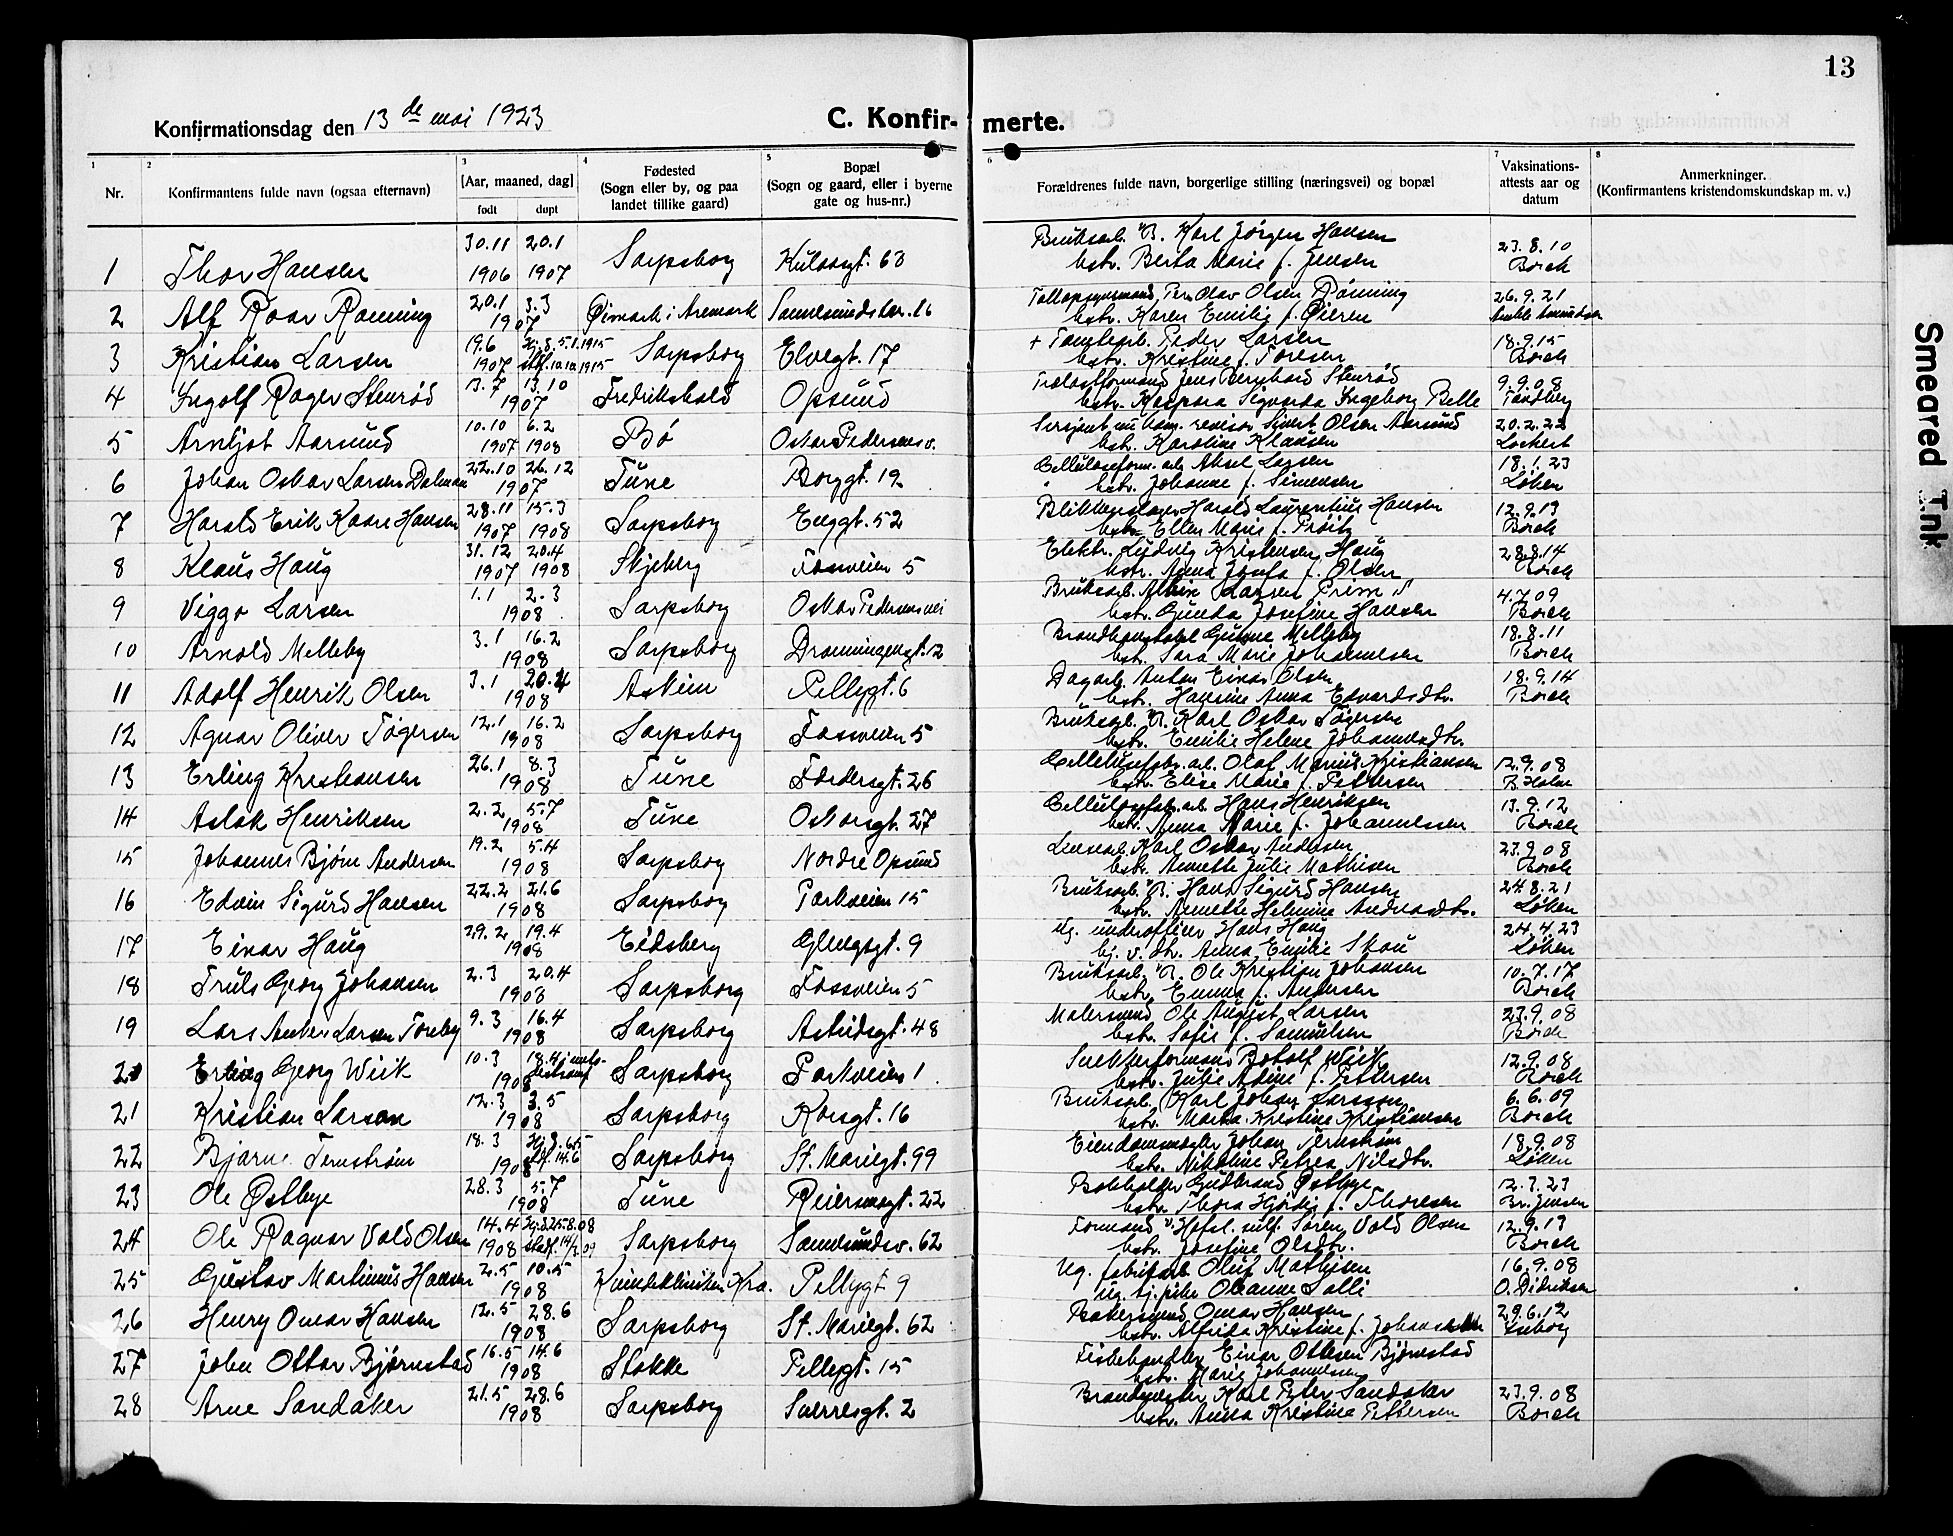 13
Konfirmationsdag den 13de mai 1923
C. Konfirmerte.
1 Nr.
2 Konfirmantens fulde navn (ogsaa efternavn)
3 [Aar, maaned, dag] født døpt
4 Fødested (Sogn eller by, og paa landet tillike gaard)
5 Bopæl (Sogn og gaard, eller i byerne gate og hus-nr.)
6 Forældrenes fulde navn, borgerlige stilling (næringsvei) og bopæl
7 Vaksinations-attests aar og datum
8 Anmerkninger. (Konfirmantens kristendomskundskap m. v.)
1 Thor Hansen 30.11 1906 20.1 1907 Sarpsborg Kulaasgt. 63 Bruksarb. B. Karl Jørgen Hansen 23.8.10
hstr. Berta Marie f. Jensen Borch
2 Alf Roar Rønning 20.1 3.3 1907 Øimark i Aremark Sannesundsvn. 16 Olav Olsen Rønning 26.9.21
hstr. Karen Emilie f. Øieren
3 Kristian Larsen 19.6 1907 Hj.d. 5.1.1915 stf. 10.10.1915 Sarpsborg Elvegt. 17 + Tomtearb. Peder Larsen 18.9.15
hstr. Kristine f. Toresen Borch
4 Ingolf Roger Stenrød 13.7 13.10 1907 Fredrikshald Opsund Trælastformand Jens Bernhard Stenrød 9.9.08
hstr. Kaspara Sigvarda Ingeborg Pelle Tandberg
5 Arnljot Aarsund 10.10 1907 6.2 1908 Bø Oskar Pedersens v. Sersjent nu kom. revisor Sivert Olsen Aarsund 20.2.22
hstr. Karoline Klausen Lockert
6 Johan Oskar Larsen Dalman 22.10 26.12 1907 Tune Borggt. 19 Aksel Larsen 18.1.23
hstr. Johanne f. Simensen Løken
7 Harald Erik Kaare Hansen 28.11 1907 15.3 1908 Sarpsborg Enggt. 52 Blikkenslager Harald Laurentius Hansen 12.9.13
hstr. Ellen Marie f. Prøitz Borch
8 Klaus Haug 31.12 1907 20.4 1908 Skjeberg Fossveien 5 Elektr. Ludvig Kristensen Haug 28.8.14
hstr. Anna Josefa f. Olsen Borch
9 Viggo Larsen 1.1 2.3 1908 Sarpsborg Oskar Pedersens vei Bruksarb. Albin Larsen Prim 4.7.09
hstr. Gunda Josefine Hansen Borch
10 Arnold Melleby 3.1 16.2 1908 Sarpsborg Dronningensgt. 12 Brandkonstabel Gunne Melleby 18.8.11
hstr. Sara Marie Johannesen Borch
11 Adolf Henrik Olsen 3.1 20.4 1908 Askim Pellygt. 6 Dagarb. Anton Einar Olsen 18.9.14
hstr. Hansine Anna Edvardsdtr. Borch
12 Agnar Oliver Tøgersen 12.1 16.2 1908 Sarpsborg Fossveien 5 Bruksarb. B. Karl Oskar Tøgersen
hstr. Emilie Helene Johannesdtr.
13 Erling Kristiansen 26.1 8.3 1908 Tune Færdersgt. 26 Cellulosefabr. arb. Olaf Marius Kristiansen 12.9.08
hstr. Elise Marie f. Pettersen B. Holm
14 Aslak Henriksen 2.2 5.7 1908 Tune Oskarsgt. 27 Cellulosefab. arb. Hans Henriksen 13.9.12
hstr. Anna Marie f. Johannessen Borch
15 Johannes Bjørn Andersen 19.2 5.4 1908 Sarpsborg Nordre Opsund Karl Oskar Andersen 23.9.08
hstr. Annette Julie Mathisen Borch
16 Edvin Sigurd Hansen 22.2 21.6 1908 Sarpsborg Parkveien 15 Bruksarb. B. Hans Sigurd Hansen 24.8.21
hstr. Annette Helmine Andreasdtr. Løken
17 Einar Haug 29.2 19.4 1908 Eidsberg Glengsgt. 9 Ug. underofficer Hans Haug 24.4.23
hj. v. dtr. Anna Emilie Skou Løken
18 Truls Georg Johansen 2.3 20.4 1908 Sarpsborg Fossveien 5 Bruksarb. B. Ole Kristian Johansen 10.7.17
hstr. Emma f. Andersen Borch
19 Lars Anker Larsen Toreby 9.3 16.4 1908 Sarpsborg Astridsgt. 48 Malersvend Ole August Larsen 23.9.08
hstr. Sofie f. Samuelsen Borch
20 Erling Georg Wiik 10.3 18.4 1908 Sarpsborg Parkveien 1 Botolf Wiik 12.9.08
hstr. Julie Adine f. Pettersen Borch
21 Kristian Larsen 12.3 3.5 1908 Sarpsborg Korsgt. 16 Bruksarb. Karl Johan Larsson 6.6.09
hstr. Marta Kristine Kristiansen Borch
22 Bjarne Ternstrøm 18.3 1908 stf. 14.6 Sarpsborg St. Mariegt. 99 Eiendomsmægler Johan Ternstrøm 18.9.08
hstr. Nikoline Petrea Nilsdtr. Løken
23 Ole Østbye 28.3 5.7 1908 Tune Reiersensgt. 22 Bokholder Gudbrand Østbye 12.3.23
hstr. Thora Hjørdis f. Thoresen Br. Jensen
24 Ole Ragnar Vold Olsen 14.4 1908 Hj.d. 25.8.08 stadf. 14/3.09 Sarpsborg Sannesundsv. 62 Formand v. Hafsl. sulf. Søren Vold Olsen 12.9.13
hstr. Josefine Olsdtr. Borch
25 Gustav Martinus Hansen 2.5 10.5 1908 Kvindeklinikken Kra. Pellygt 9 Ug. fabrikarb. Oluf Mathisen 16.9.08
ug. tj.pike Oleanne Solli O. Didriksen
26 Henry Omar Hansen 12.5 28.6 1908 Sarpsborg St. Mariegt. 62 Bakersvend Omar Hansen 29.6.12
hstr. Alfrida Kristine f. Johansen
27 John Ottar Bjørnestad 16.5 14.6 1908 Stokke Pellygt. 15 Fiskehandler Einar Ottesen Bjørnestad
hstr. Marie Johannesen
28 Arne Sandaker 21.5 28.6 1908 Sarpsborg Sverresgt. 2 Brandmester Karl Peter Sandaker 23.9.08
hstr. Anna Kristine Pettersen Borch
Smeared Ink